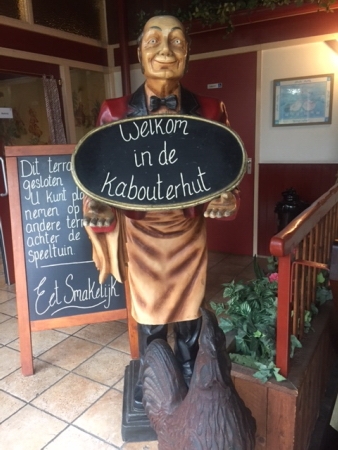 Welkom
in de
Kabouterhut
Dit terra
gesloten
U kunt pla
nemen op
andere terr
achter de
speeltuin
Eet Smakelijk